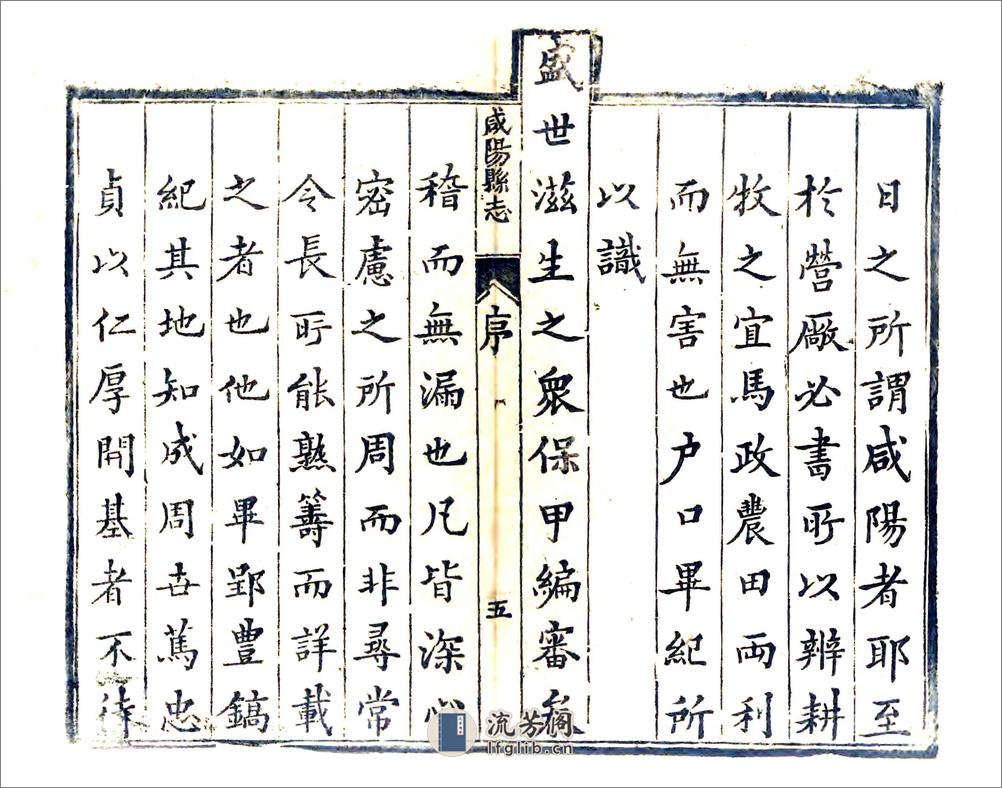 日之所謂咸陽者耶至
於營廠必書所以辨耕
牧之宜馬政農田两利
而無害也户口畢紀所
以識
盛世滋生之衆保甲編審矣
咸陽縣志
序
五
稽而無漏也凡皆深心
宻慮之所周而非尋常
令長所能熟籌而詳載
之者也他如畢郢豐鎬
紀其地知成周世篤忠
貞以仁厚開基者不待
流芳阁
lfglib.cn